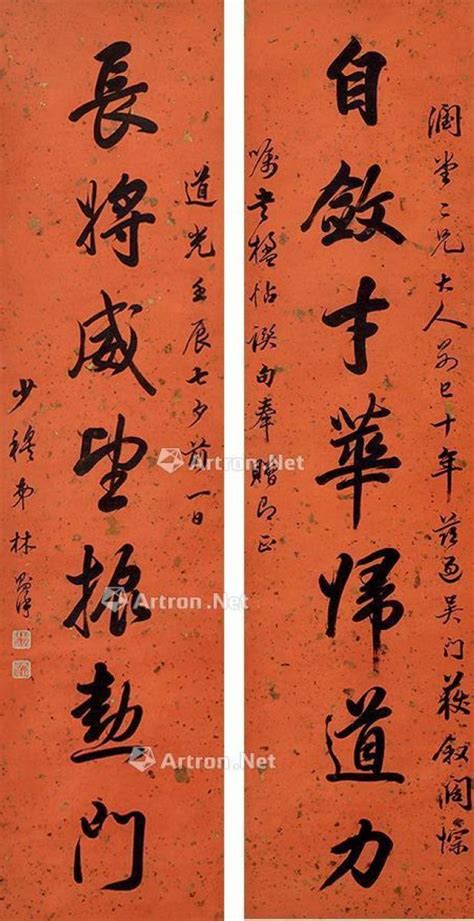 潤堂二兄大人别已十年茲過吴門获敘闊悰
自斂才華歸道力
囑書楹帖撰句奉贈即正
道光壬辰七夕前一日
長將威望振勳門
少穆弟林則徐
Artron.Net
Artron.Net
Artron.Net